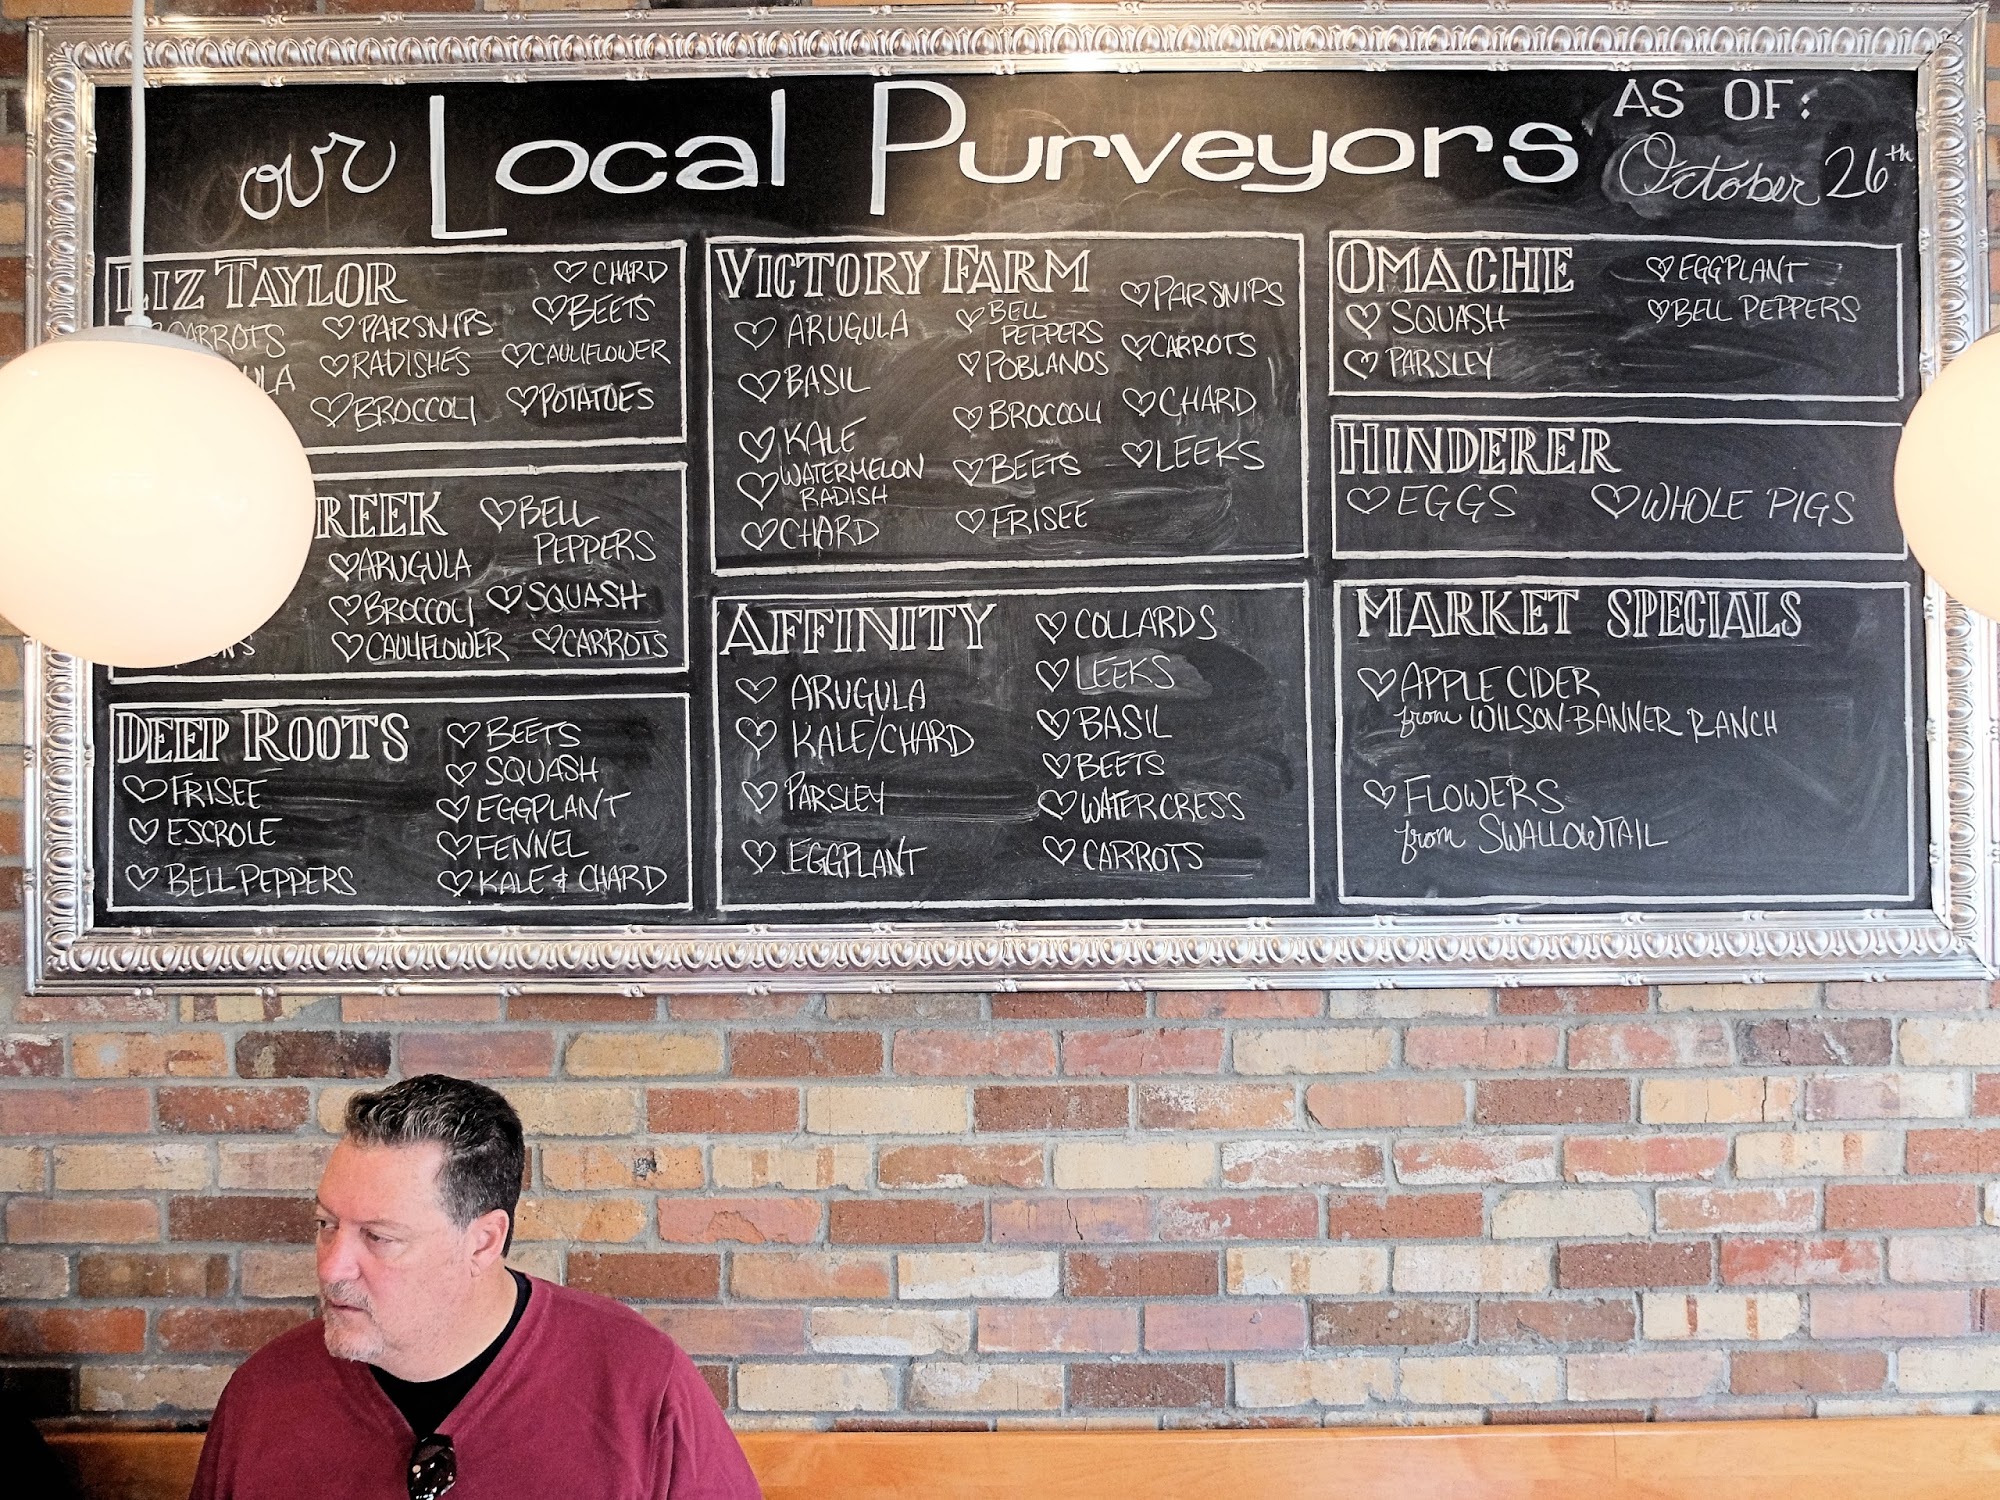 our Local Purveyors
AS OF:
October 26th
LIZ TAYLOR
PARSNIPS
RADISHES
BROCCOLI
CHARD
BEETS
CAULIFLOWER
POTATOES
ARUGULA
BROCCOLI
CAULIFLOWER
BELL
PEPPERS
SQUASH
CARROTS
DEEP ROOTS
FRISEE
ESCROLE
BELL PEPPERS
BEETS
SQUASH
EGGPLANT
FENNEL
KALE & CHARD
VICTORY FARM
ARUGULA
BASIL
KALE
WATERMELON
RADISH
CHARD
BELL
PEPPERS
POBLANOS
BROCCOLI
BEETS
FRISEE
PARSNIPS
CARROTS
CHARD
LEEKS
AFFINITY
ARUGULA
KALE/CHARD
PARSLEY
EGGPLANT
COLLARDS
LEEKS
BASIL
BEETS
WATERCRESS
CARROTS
OMACHE
SQUASH
PARSLEY
EGGPLANT
BELL PEPPERS
HINDERER
EGGS
WHOLE PIGS
MARKET SPECIALS
APPLE CIDER
from WILSON-BANNER RANCH
FLOWERS
from SWALLOWTAIL